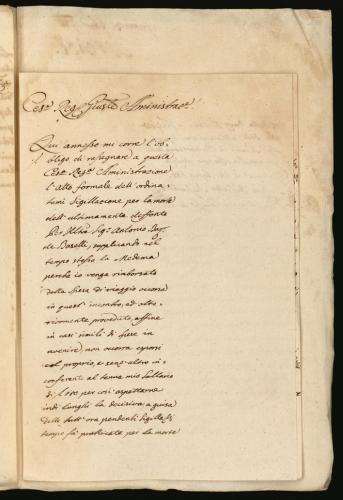 Ces.ª Reg.ª Giusta Aministraz.ᵉ
Qui annesso mi corre l'ob-
bligo di rasegnare a questa
Ces.ª Reg.ª Aministrazione
l'atto formale dell'ordina-
temi Sigillazione per la morte
dell'ultimamente deffonto
Antonio
de Boselli, supplicando nel
tempo stesso la Medema
perchè io venga rimborsato
della spesa di viaggio occorsa
in quest'incontro, ed ulte-
riormente proveduto, affine
in casi simili di spese in
avenire, non occorra esporsi
col proprio, e senz'altro in-
al tenue mio Sallario
di per cui aspettarne
indi lunghi la decisiva, a guisa
delle tutt'ora pendenti Sigilla-
tempo fà pratticate per la morte